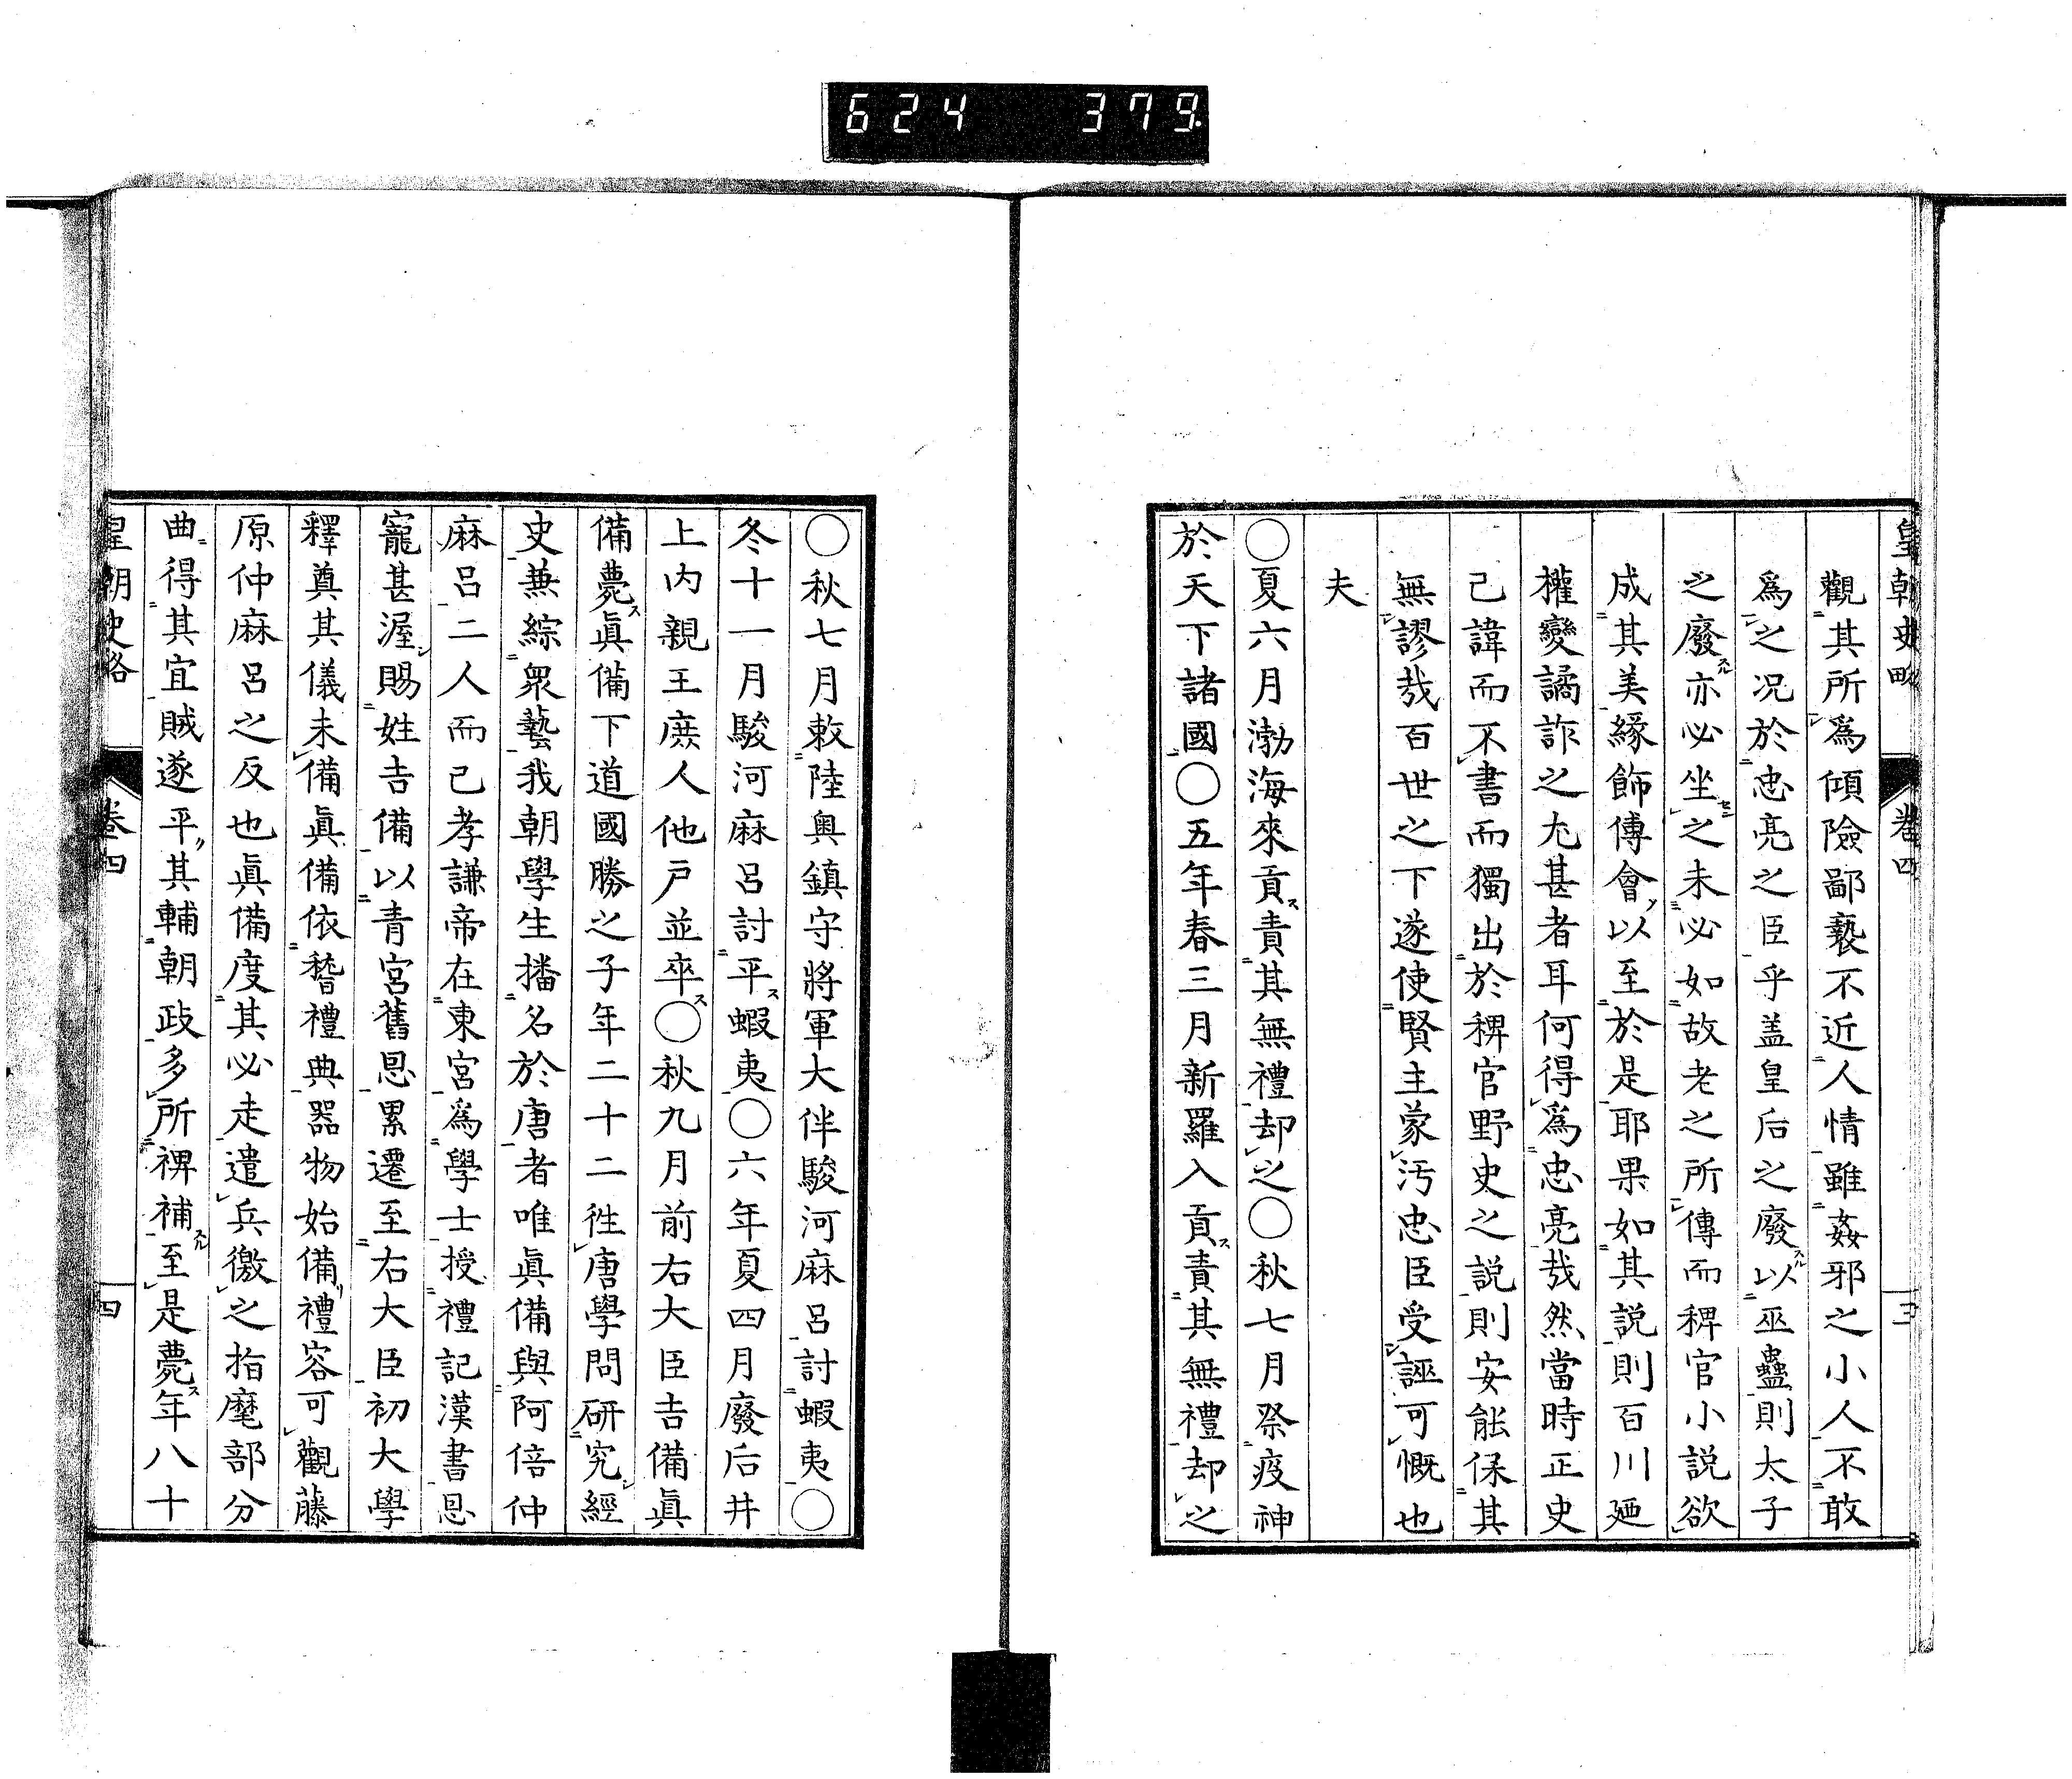 624 379.
皇朝史略 卷四 三
觀其所爲傾險鄙褻不近人情雖姦邪之小人不敢
爲之况於忠亮之臣乎盖皇后之廢スル以巫蠱則太子
之廢スル亦必坐セシ之未必如故老之所傳而稗官小説欲
成其美緣飾傅會ノ以至於是耶果如其説則百川廼
權變譎詐之尤甚者耳何得爲忠亮哉然當時正史
己諱而不書而獨出於稗官野史之説則安能保其
無謬哉百世之下遂使賢主蒙汚忠臣受誣可慨也
夫
〇夏六月渤海來貢ス責其無禮却之〇秋七月祭疫神
於天下諸國〇五年春三月新羅入貢ス責其無禮却之
〇秋七月敕陸奥鎮守將軍大伴駿河麻呂討蝦夷〇
冬十一月駿河麻呂討平ス蝦夷〇六年夏四月廢后井
上内親王庶人他戸並卒ス〇秋九月前右大臣吉備眞
備薨ス眞備下道國勝之子年二十二徃唐學問研究經
史兼綜衆藝我朝學生播名於唐者唯眞備與阿倍仲
麻呂二人而己孝謙帝在東宮爲學士授禮記漢書恩
寵甚渥賜姓吉備以青宮舊恩累遷至右大臣初大學
釋奠其儀未備眞備依稽禮典器物始備リ禮容可觀藤
原仲麻呂之反也眞備度其必走遣兵徼之指麾部分
曲得其宜賊遂平リ其輔朝政多所裨補スル至是薨ス年八十
皇朝史略 卷四 四